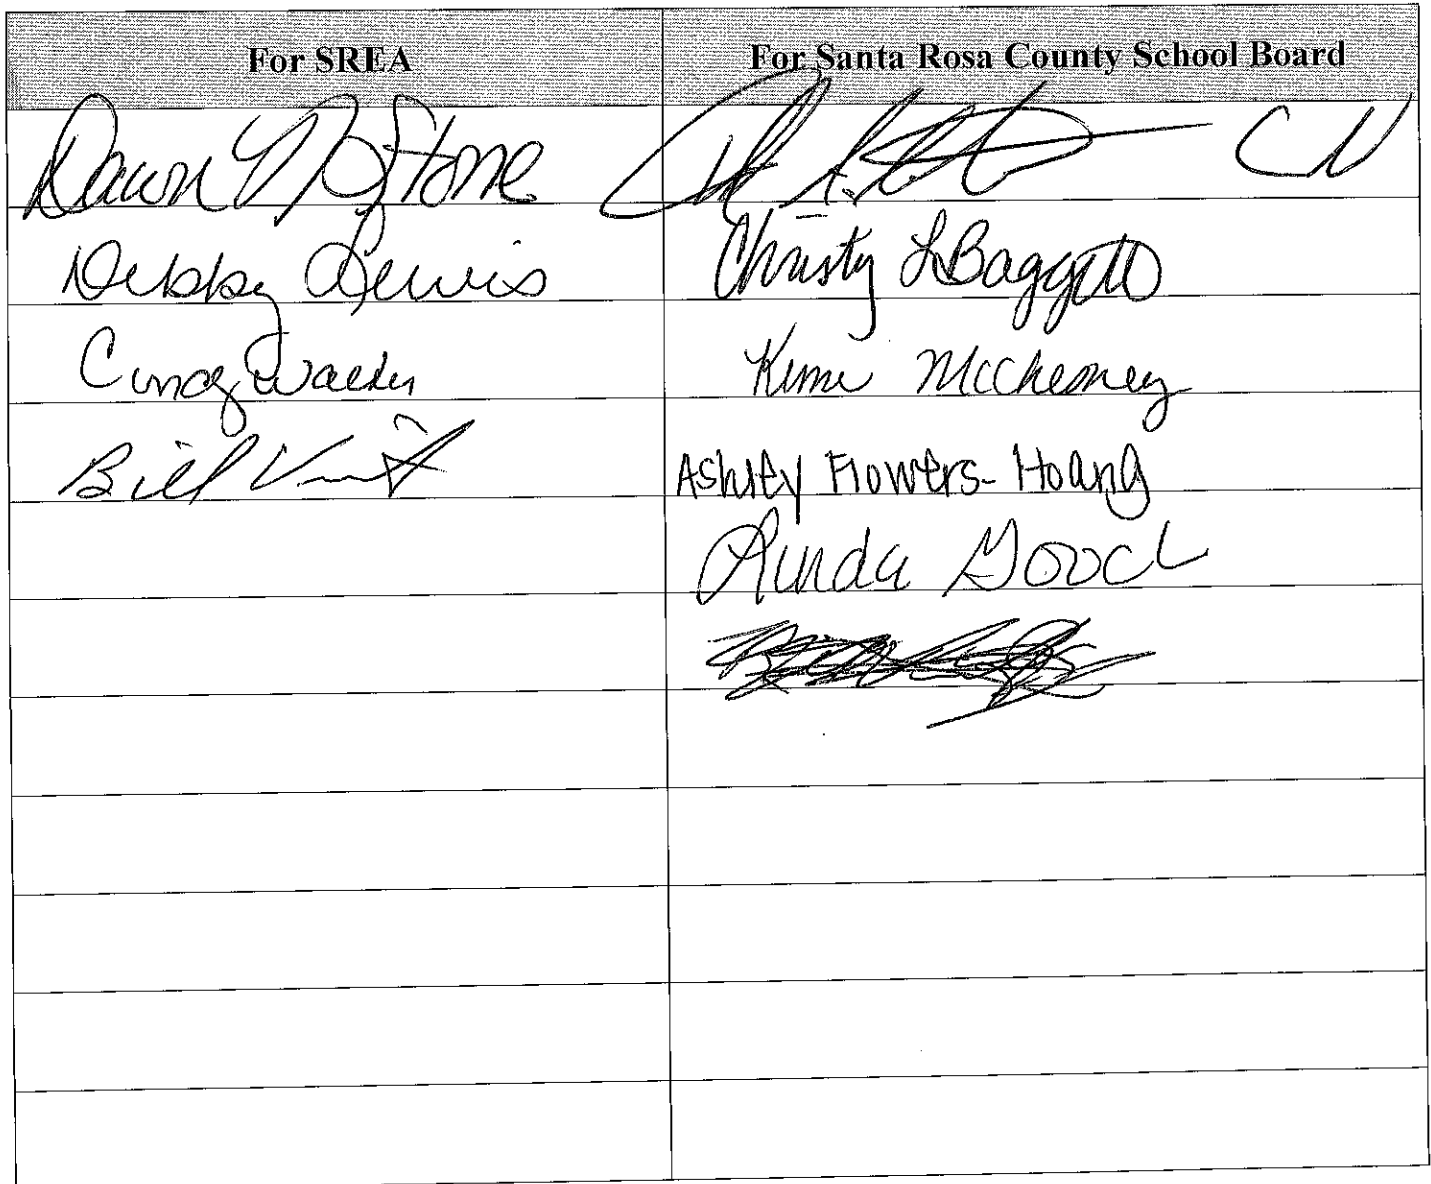 For SREA For Santa Rosa County School Board
Dawn Stone
Debby Lewis Christy L Baggett
Cindy Kimi McChesney
Bill Ashley Flowers-Hoang
Linda Gooch